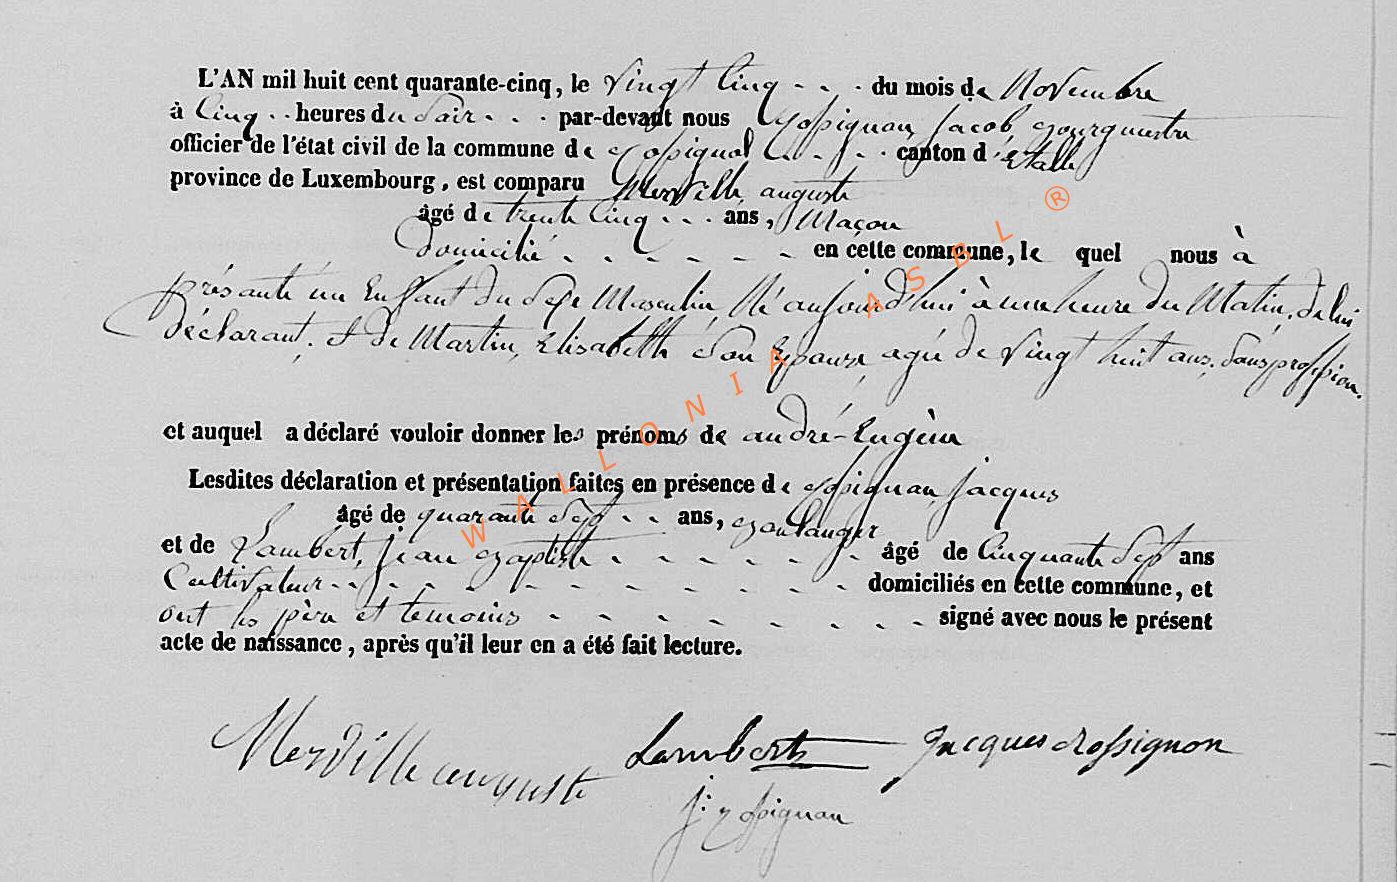 L'AN mil huit cent quarante-cinq, le vingt Cinq . . . du mois de Novembre
à Cinq . . heures du Soir . . . par-devant nous Rossignon, Jacob, Bourgmestre
officier de l'état civil de la commune de Rossignol . . . canton d'Etalle
province de Luxembourg, est comparu Merville, auguste
âgé de trente Cinq . . . ans, Maçon
domicilié . . . . . . en cette commune, le quel nous à
présanté un Enffant du Sexe Masculin, Né aujourd'hui à une heure du Matin, de lui
déclarant, et de Martin, Elisabeth Son Epouse, agée de vingt huit ans, Sans
et auquel a déclaré vouloir donner les prénoms de andré-Eugène
Lesdites déclaration et présentation faites en présence de Rossignon, Jacques
âgé de quarante Sept . . ans, Boulanger
et de Lambert, jean Baptiste . . . . . . . âgé de Cinquante Sept ans
Cultivateur . . . . . . . . . . . domiciliés en cette commune, et
ont les père et temoins . . . . . . . . . signé avec nous le présent
acte de naissance, après qu'il leur en a été fait lecture.
Merville auguste Lambert Jacques Rossignon
J: Rossignon
WALLONIA ASBL ®